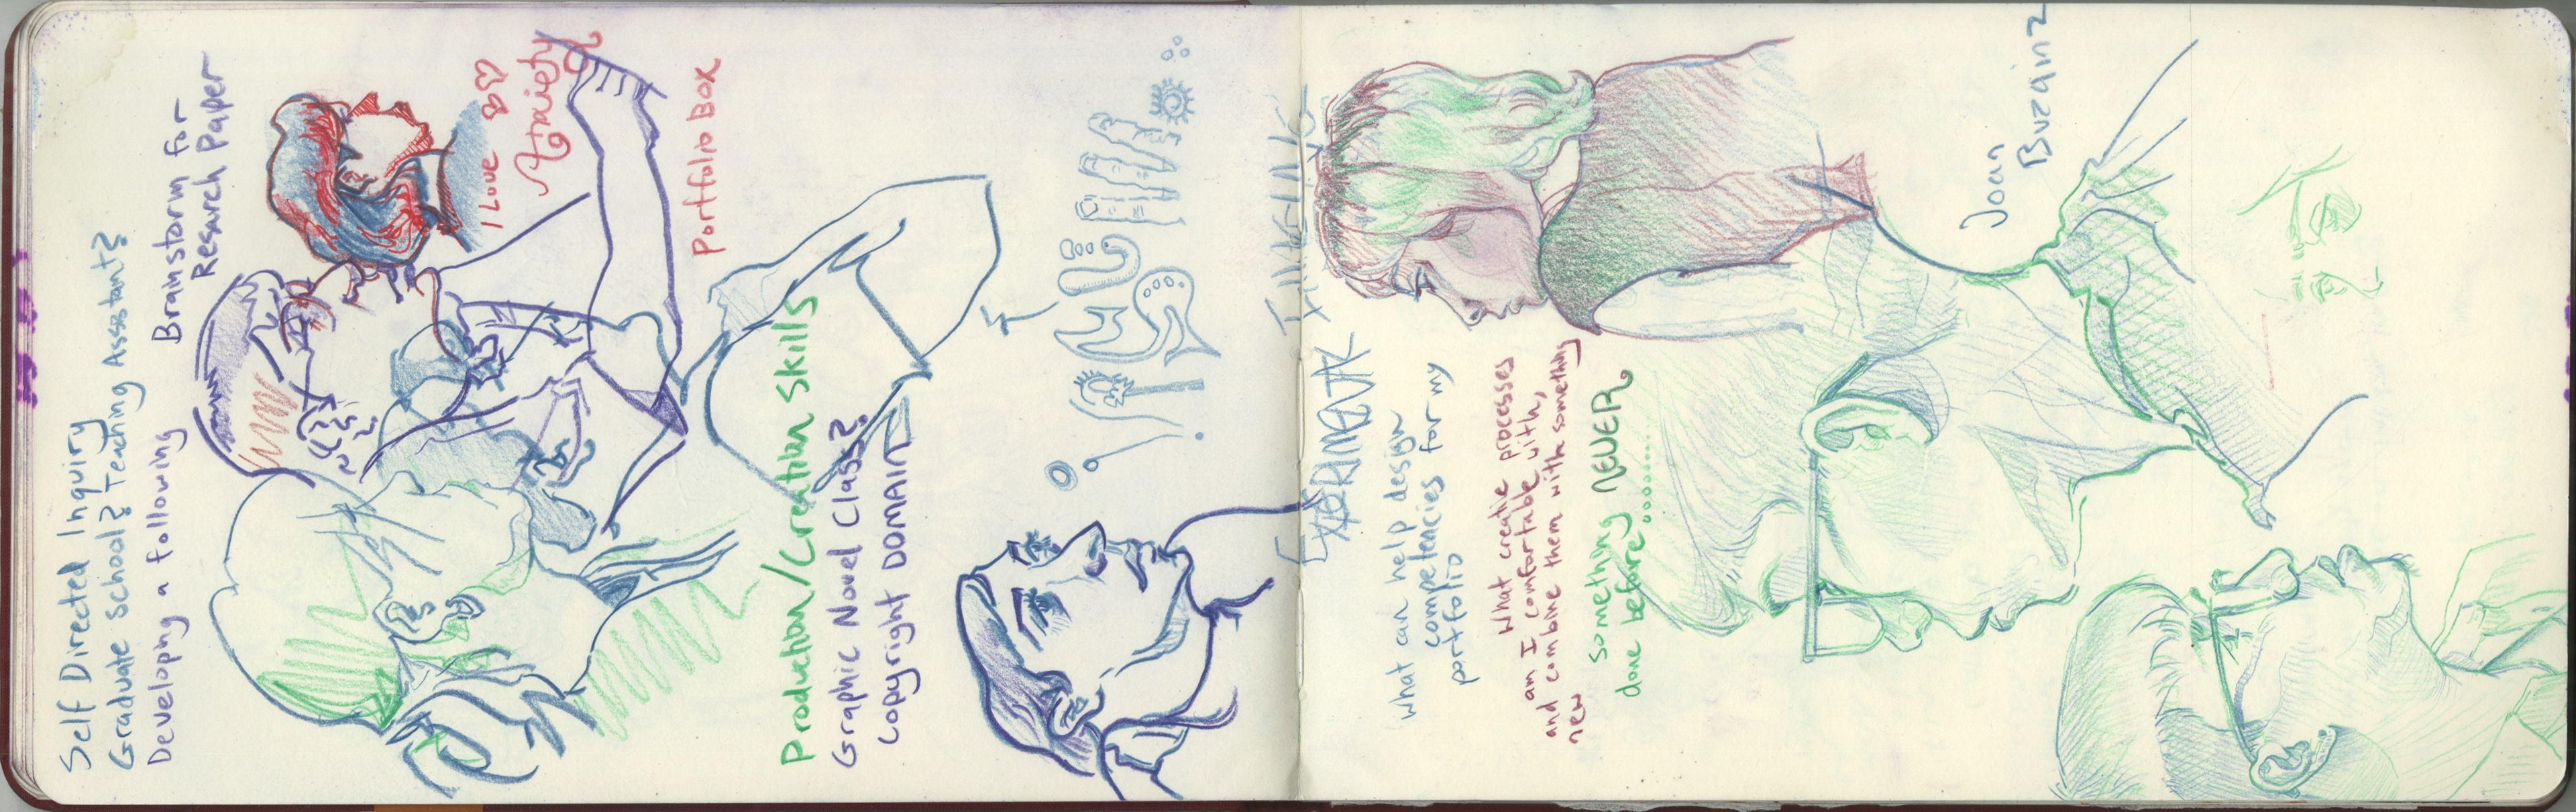 Self Directed Inquiry
Graduate School? Teaching Assistant?
Developing a following
Brainstorm for
Research Paper
I Love
Portfolio Box
Production/Creation Skills
Graphic Novel Class?
Copyright DOMAIN
THINKING
What can help design
competencies for my
portfolio
What creative processes
am I comfortable with,
and combine them with something
new
Something NEVER
done before?
Joan